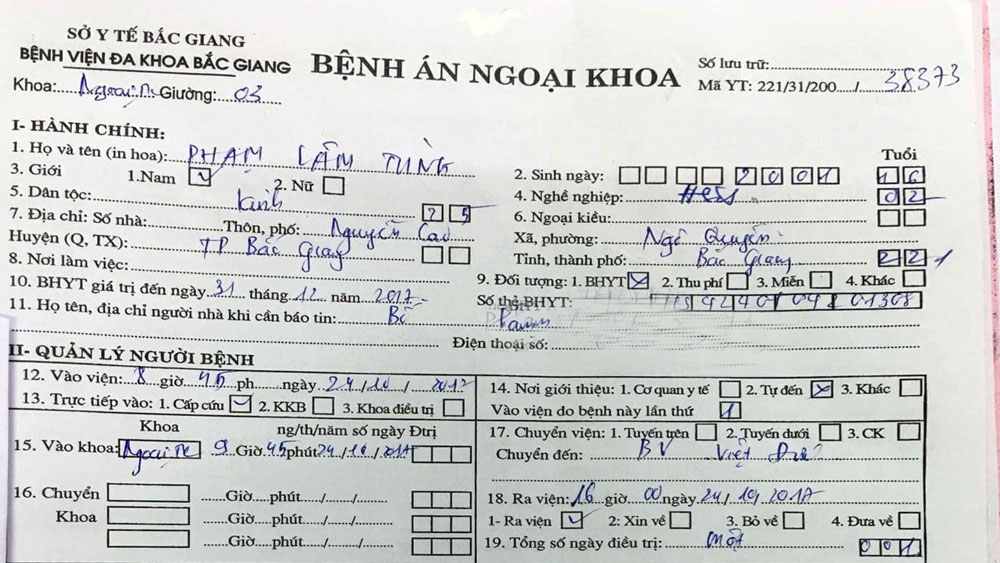 SỞ Y TẾ BẮC GIANG
BỆNH VIỆN ĐA KHOA BẮC GIANG
BỆNH ÁN NGOẠI KHOA
Số lưu trữ:
Mã YT: 221/31/200..../ 38373
Khoa: Giường: 03
I- HÀNH CHÍNH:
Tuổi
1. Họ và tên (in hoa): PHẠM LÂM TÙNG
2. Sinh ngày: 2001 16
3. Giới 1.Nam 2. Nữ
4. Nghề nghiệp: 02
5. Dân tộc: kinh 25
6. Ngoại kiều:
7. Địa chỉ: Số nhà: Thôn, phố: Nguyễn Cao
Xã, phường: Ngô Quyền
Huyện (Q, TX): TP Bắc Giang
Tỉnh, thành phố: Bắc Giang 221
8. Nơi làm việc:
9. Đối tượng: 1. BHYT 2. Thu phí 3. Miễn 4. Khác
10. BHYT giá trị đến ngày 31 tháng 12 năm 2017
Số thẻ BHYT:
11. Họ tên, địa chỉ người nhà khi cần báo tin: Bố
Điện thoại số:
II- QUẢN LÝ NGƯỜI BỆNH
12. Vào viện: 8 giờ 45 ph ngày 24/10/2017
14. Nơi giới thiệu: 1. Cơ quan y tế 2. Tự đến 3. Khác
13. Trực tiếp vào: 1. Cấp cứu 2. KKB 3. Khoa điều trị
Vào viện do bệnh này lần thứ 1
Khoa ng/th/năm số ngày Đtrị
17. Chuyển viện: 1. Tuyến trên 2. Tuyến dưới 3. CK
15. Vào khoa: 9 Giờ 45 phút 24/10/2017
Chuyển đến: BV Việt Đức
16. Chuyển ....Giờ....phút..../..../....
18. Ra viện: 16 giờ 00 ngày 24/10/2017
Khoa ....Giờ....phút..../..../....
1- Ra viện 2: Xin về 3. Bỏ về 4. Đưa về
....Giờ....phút..../..../....
19. Tổng số ngày điều trị: một 001